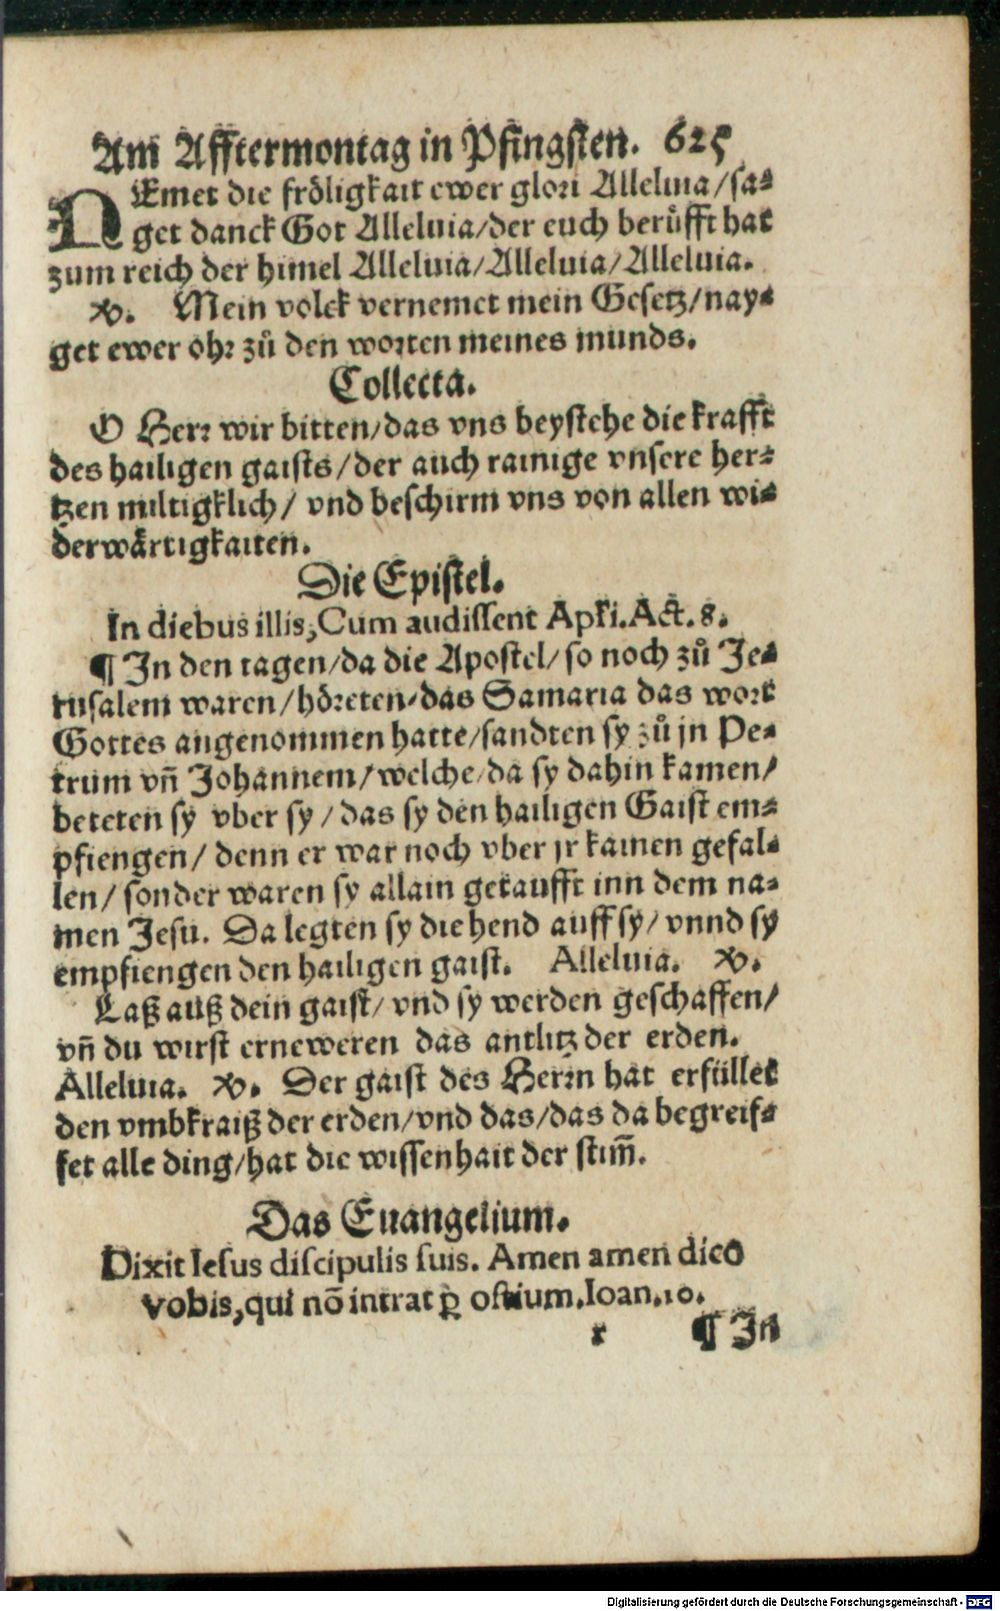 Am Afftermontag in Pfingsten. 625
NEmet die fröligkait ewer glori Alleluia/sa-
get danck Got Alleluia/der euch berůfft hat
zum reich der himel Alleluia/Alleluia/Alleluia.
℣. Mein volck vernemet mein Gesetz/nay-
get ewer ohr zů den worten meines munds.
Collecta.
O Herr wir bitten/das vns beystehe die krafft
des hailigen gaists/der auch rainige vnsere her-
tzen miltigklich/ vnd beschirm vns von allen wi-
derwärtigkaiten.
Die Epistel.
In diebus illis, Cum audissent Apłi. Act. 8.
¶ In den tagen/da die Apostel/so noch zů Je-
rusalem waren/höreten/das Samaria das wort
Gottes angenommen hatte/sandten sy zů jn Pe-
trum vñ Johannem/welche/da sy dahin kamen/
beteten sy vber sy/das sy den hailigen Gaist em-
pfiengen/ denn er war noch vber jr kainen gefal-
len/ sonder waren sy allain getaufft inn dem na-
men Jesu. Da legten sy die hend auff sy/ vnnd sy
empfiengen den hailigen gaist. Alleluia. ℣.
Laß auß dein gaist/ vnd sy werden geschaffen/
vñ du wirst erneweren das antlitz der erden.
Alleluia. ℣. Der gaist des Herrn hat erfüllet
den vmbkraiß der erden/vnd das/das da begreif-
fet alle ding/hat die wissenhait der stim̃.
Das Euangelium.
Dixit Iesus discipulis suis. Amen amen dico
vobis, qui nõ intrat ꝑ ostium. Ioan. 10.
r ¶ In
Digitalisierung gefördert durch die Deutsche Forschungsgemeinschaft - DFG